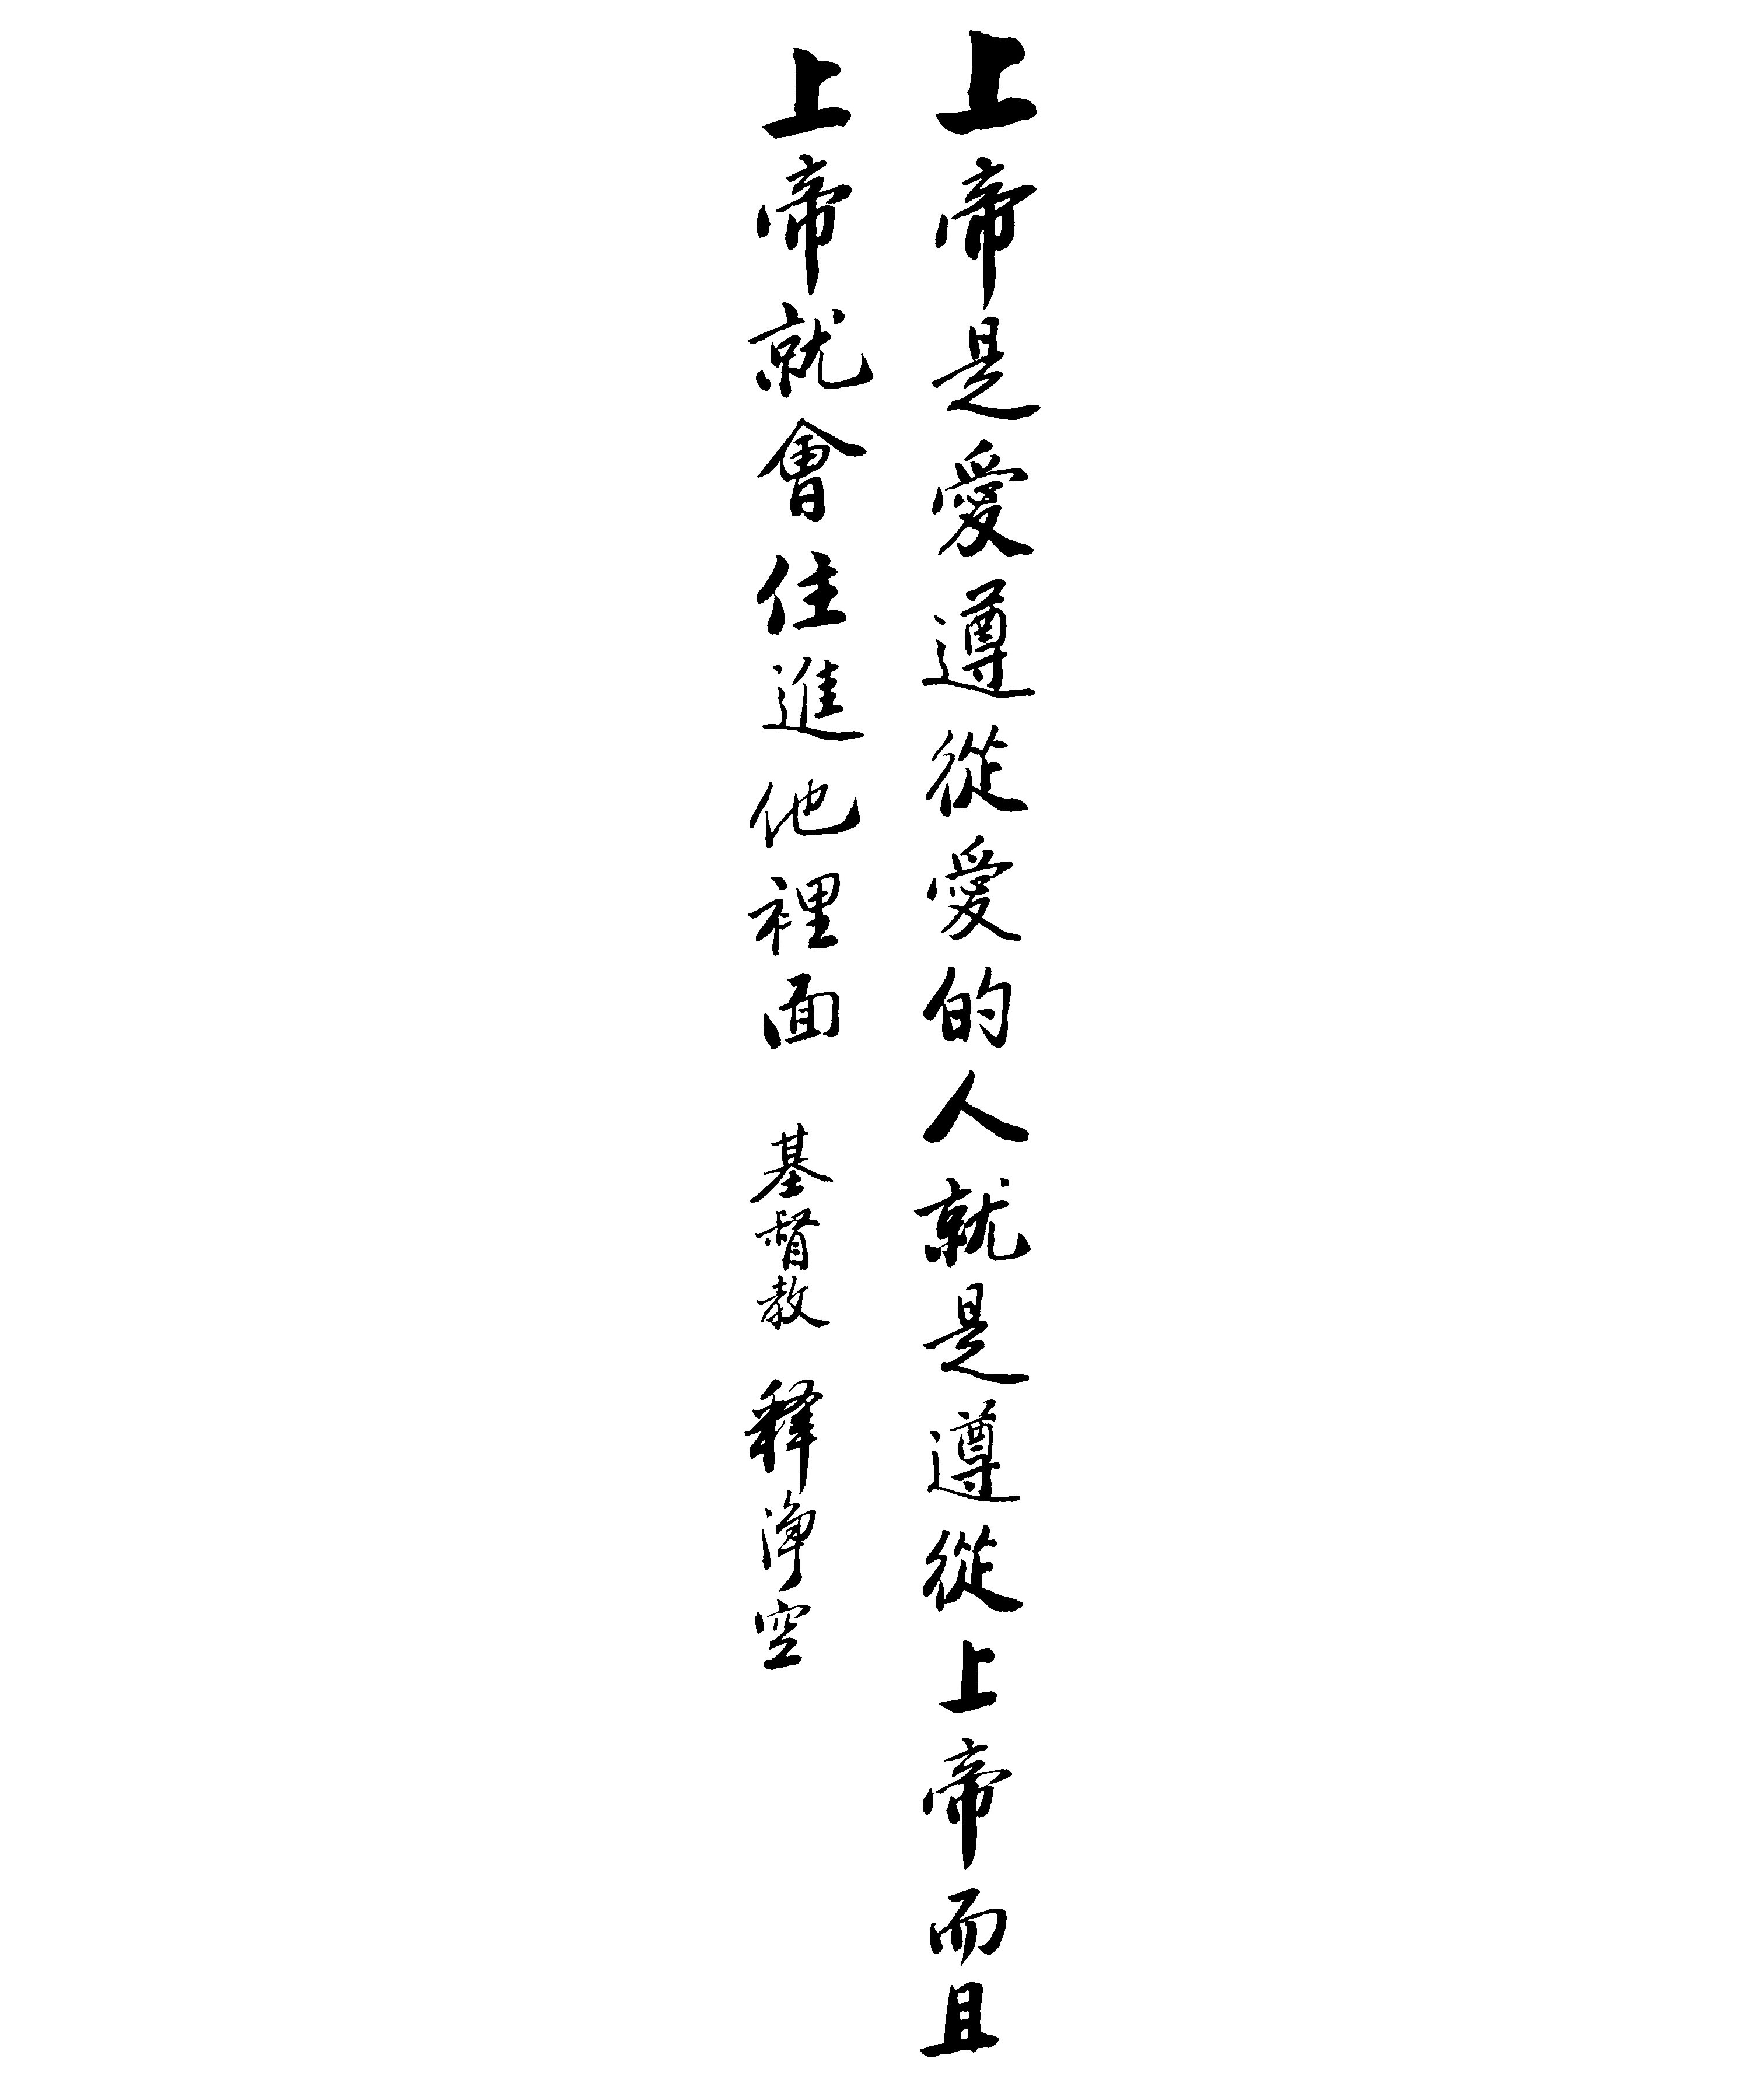 上帝是愛遵從愛的人就是遵從上帝而且
上帝就會住進他裡面 基督教 释淨空